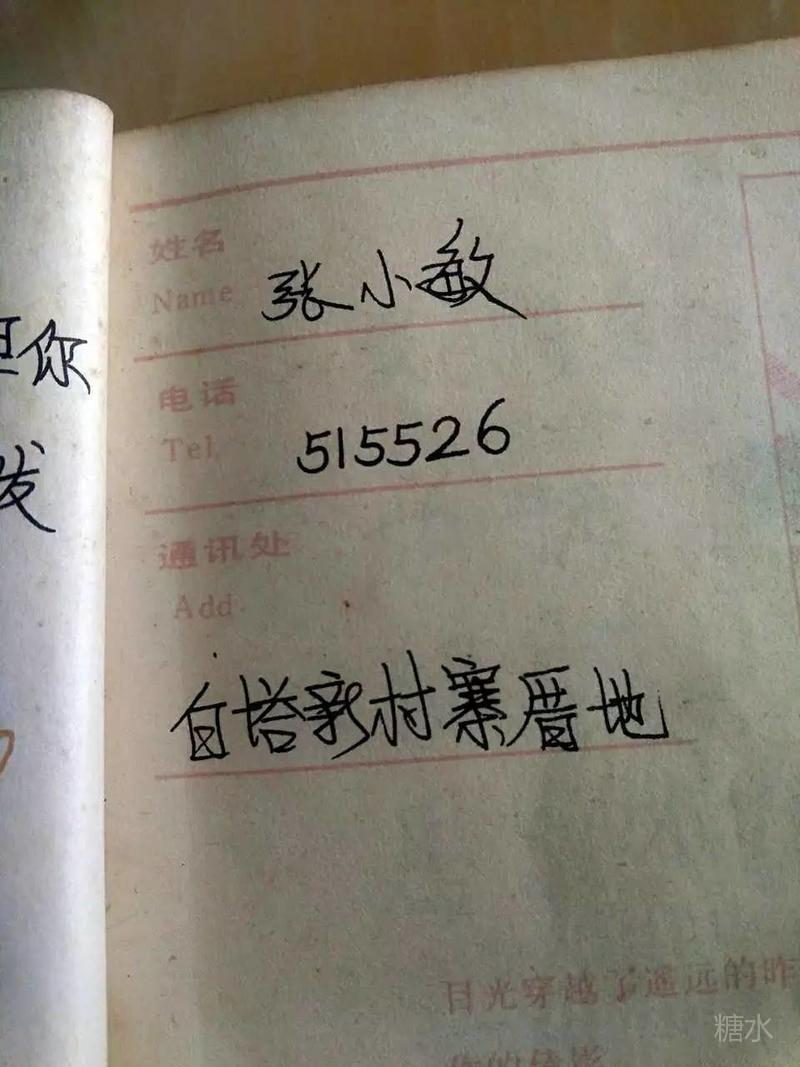 姓名
Name 张小敏
电话
Tel 515526
通讯处
Add
白塔新村寨厝地
你
发
目光穿越了遥远的昨
糖水